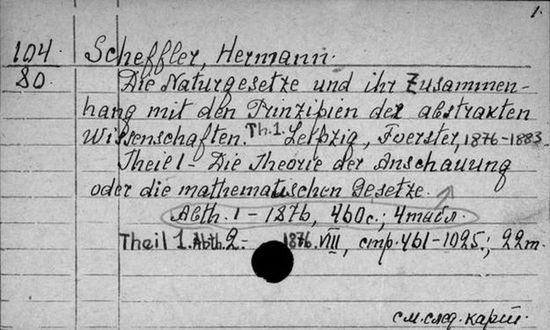 1.
104 Scheffler, Hermann.
80. Die Naturgesetze und ihr Zusammen-
hang mit den Prinzipien der abstrakten
Wissenschaften. Th.1. Leipzig, Foerster, 1876-1883.
Theil 1 - Die Theorie der Anschauung
oder die mathematischen Gesetze.
Abth. 1 - 1876, 460 с.; 4 табл.
Theil 1. Abth. 2. - 1876. VIII, стр. 461-1025.; 22 т.
см. след. карт.